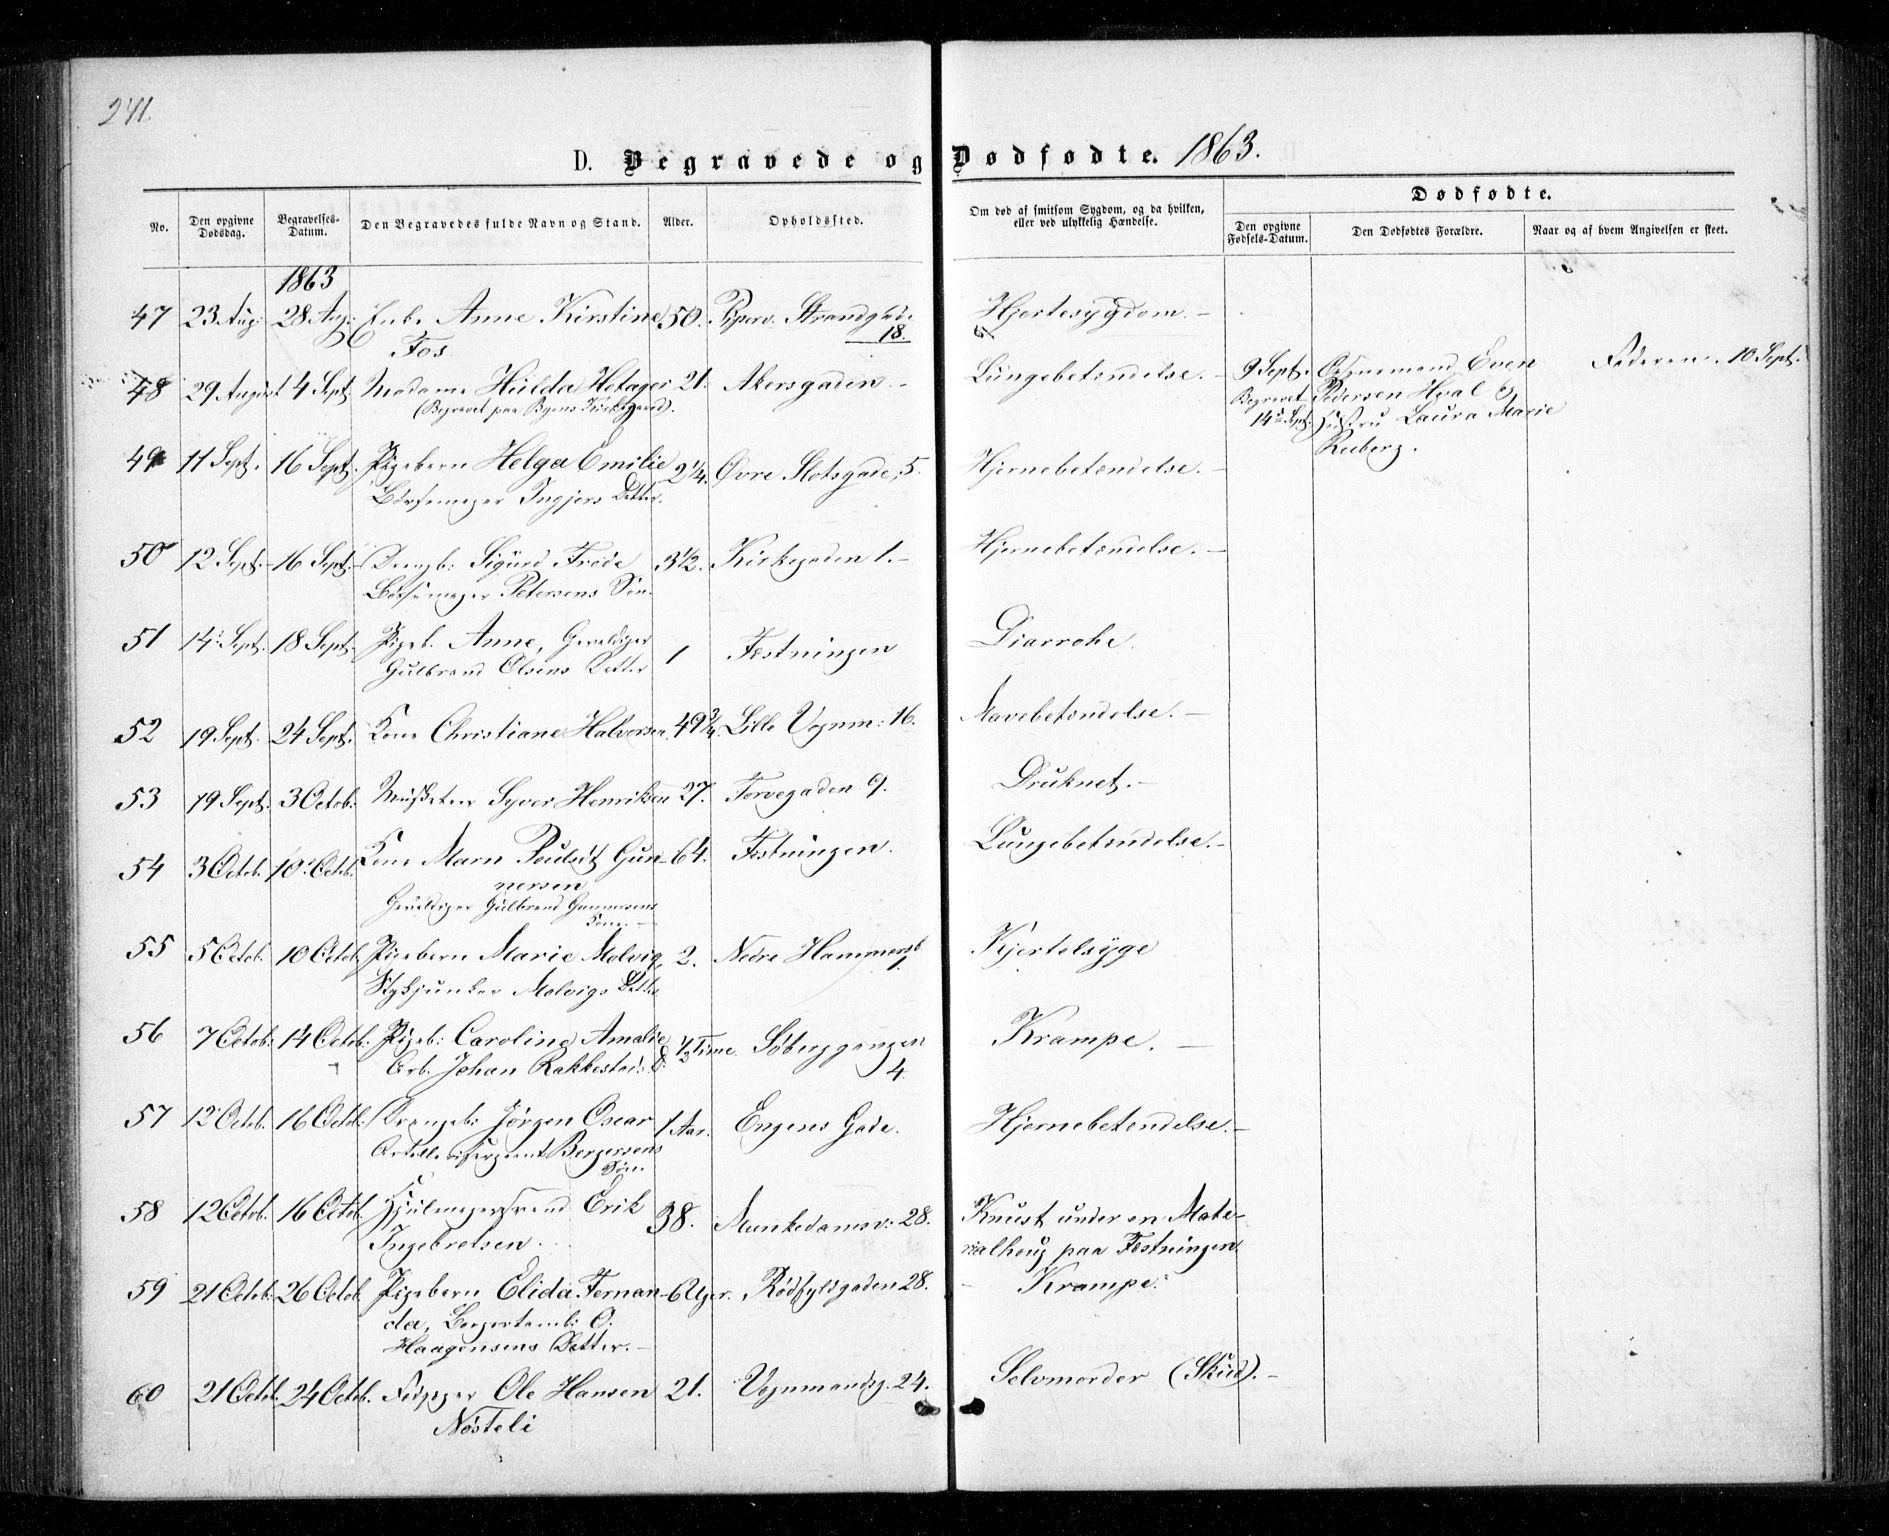 241.
D. Begravede og Dødfødte. 1863.
No. Den opgivne Dødsdag. Begravelses-Datum. Den Begravedes fulde Navn og Stand. Alder. Opholdssted. Om død af smitsom Sygdom, og da hvilken, eller ved ulykkelig Hændelse. Dødfødte.
Den opgivne Fødsels-Datum. Den Dødfødtes Forældre. Naar og af hvem Angivelsen er skeet.
1863
47 23 Aug: 28 Aug: Enke Anne Kirstine 50. Piperv. Strandgade Hjertesygdom. –
Fos 18.
48 29 August 4 Sept. Madame Hulda Hetager 21. Akersgaden. – Lungebetændelse. – 9 Sept. Even Faderen. 10 Sept.
(Begravet paa Byens Kirkegaard). Begravet Pedersen Hval &
14de Sept. Hustru Laura Marie
Ruberg.
49 11 Sept. 16 Sept. Pigebarn Helga Emilie 2¼. Øvre Slotsgade, 5. Hjernebetændelse. –
Børsemager Ingjers Datter.
50 12 Sept. – 16 Sept. – Drengb: Sigurd Frode 3½. Kirkegaden 1. – Hjernebetændelse. –
Børsemager Petersens Søn.
51 14 Sept. 18 Sept. Pigeb. Anne, Gevaldiger 1 Fæstningen Diarrohe.
Gulbrand Olsens Datter
52 19 Sept. 24 Sept. Kone Christiane Halvorsen 49¾. Lille Vognm: 16. Mavebetændelse. –
53 19 Sept. 3 Octob: Musketeer Syver Henriksen 27. Torvegaden 9. Druknet. –
54 3 Octob. 10 Octob. Kone Maren Poulsdt Gun- 64. Fæstningen. Lungebetændelse. –
nersen
Gevaldiger Gulbrand Gunnersens
Kone. –
55 5 Octob. 10 Octob. Pigebarn Marie Molvig, 2. Nedre Hammersb. Kjertelsyge
Stykjunker Molvigs Datter 1.
56 7 Octob: 14 Octob: Pigeb: Caroline Amalie ½ Time. Søberggangen Krampe. –
Arb. Johan Rakkestad D. 4.
57 12 Octob. 16 Octob: Drengeb: Jørgen Oscar 1 Aar. Engens Gade. Hjernebetændelse. –
Artillerisergeant Bergersens
Søn.
58 12 Octob. 16 Octob. Hjulmagersvend Erik 38. Munkedamsv: 28. Knust under en Mate-
Ingebretsen. rialhoug paa Fæstningen.
59 21 Octob: 26 Octob. Pigebarn Elida Fernan- 6 Uger. Rødfyldgaden 28. – Krampe.
da, O.
Haagensens Datter. –
60 21 Octob. 24 Octob. Ole Hansen 21. Vognmandsg. 24. Selvmorder (Skud). –
Nøsteli